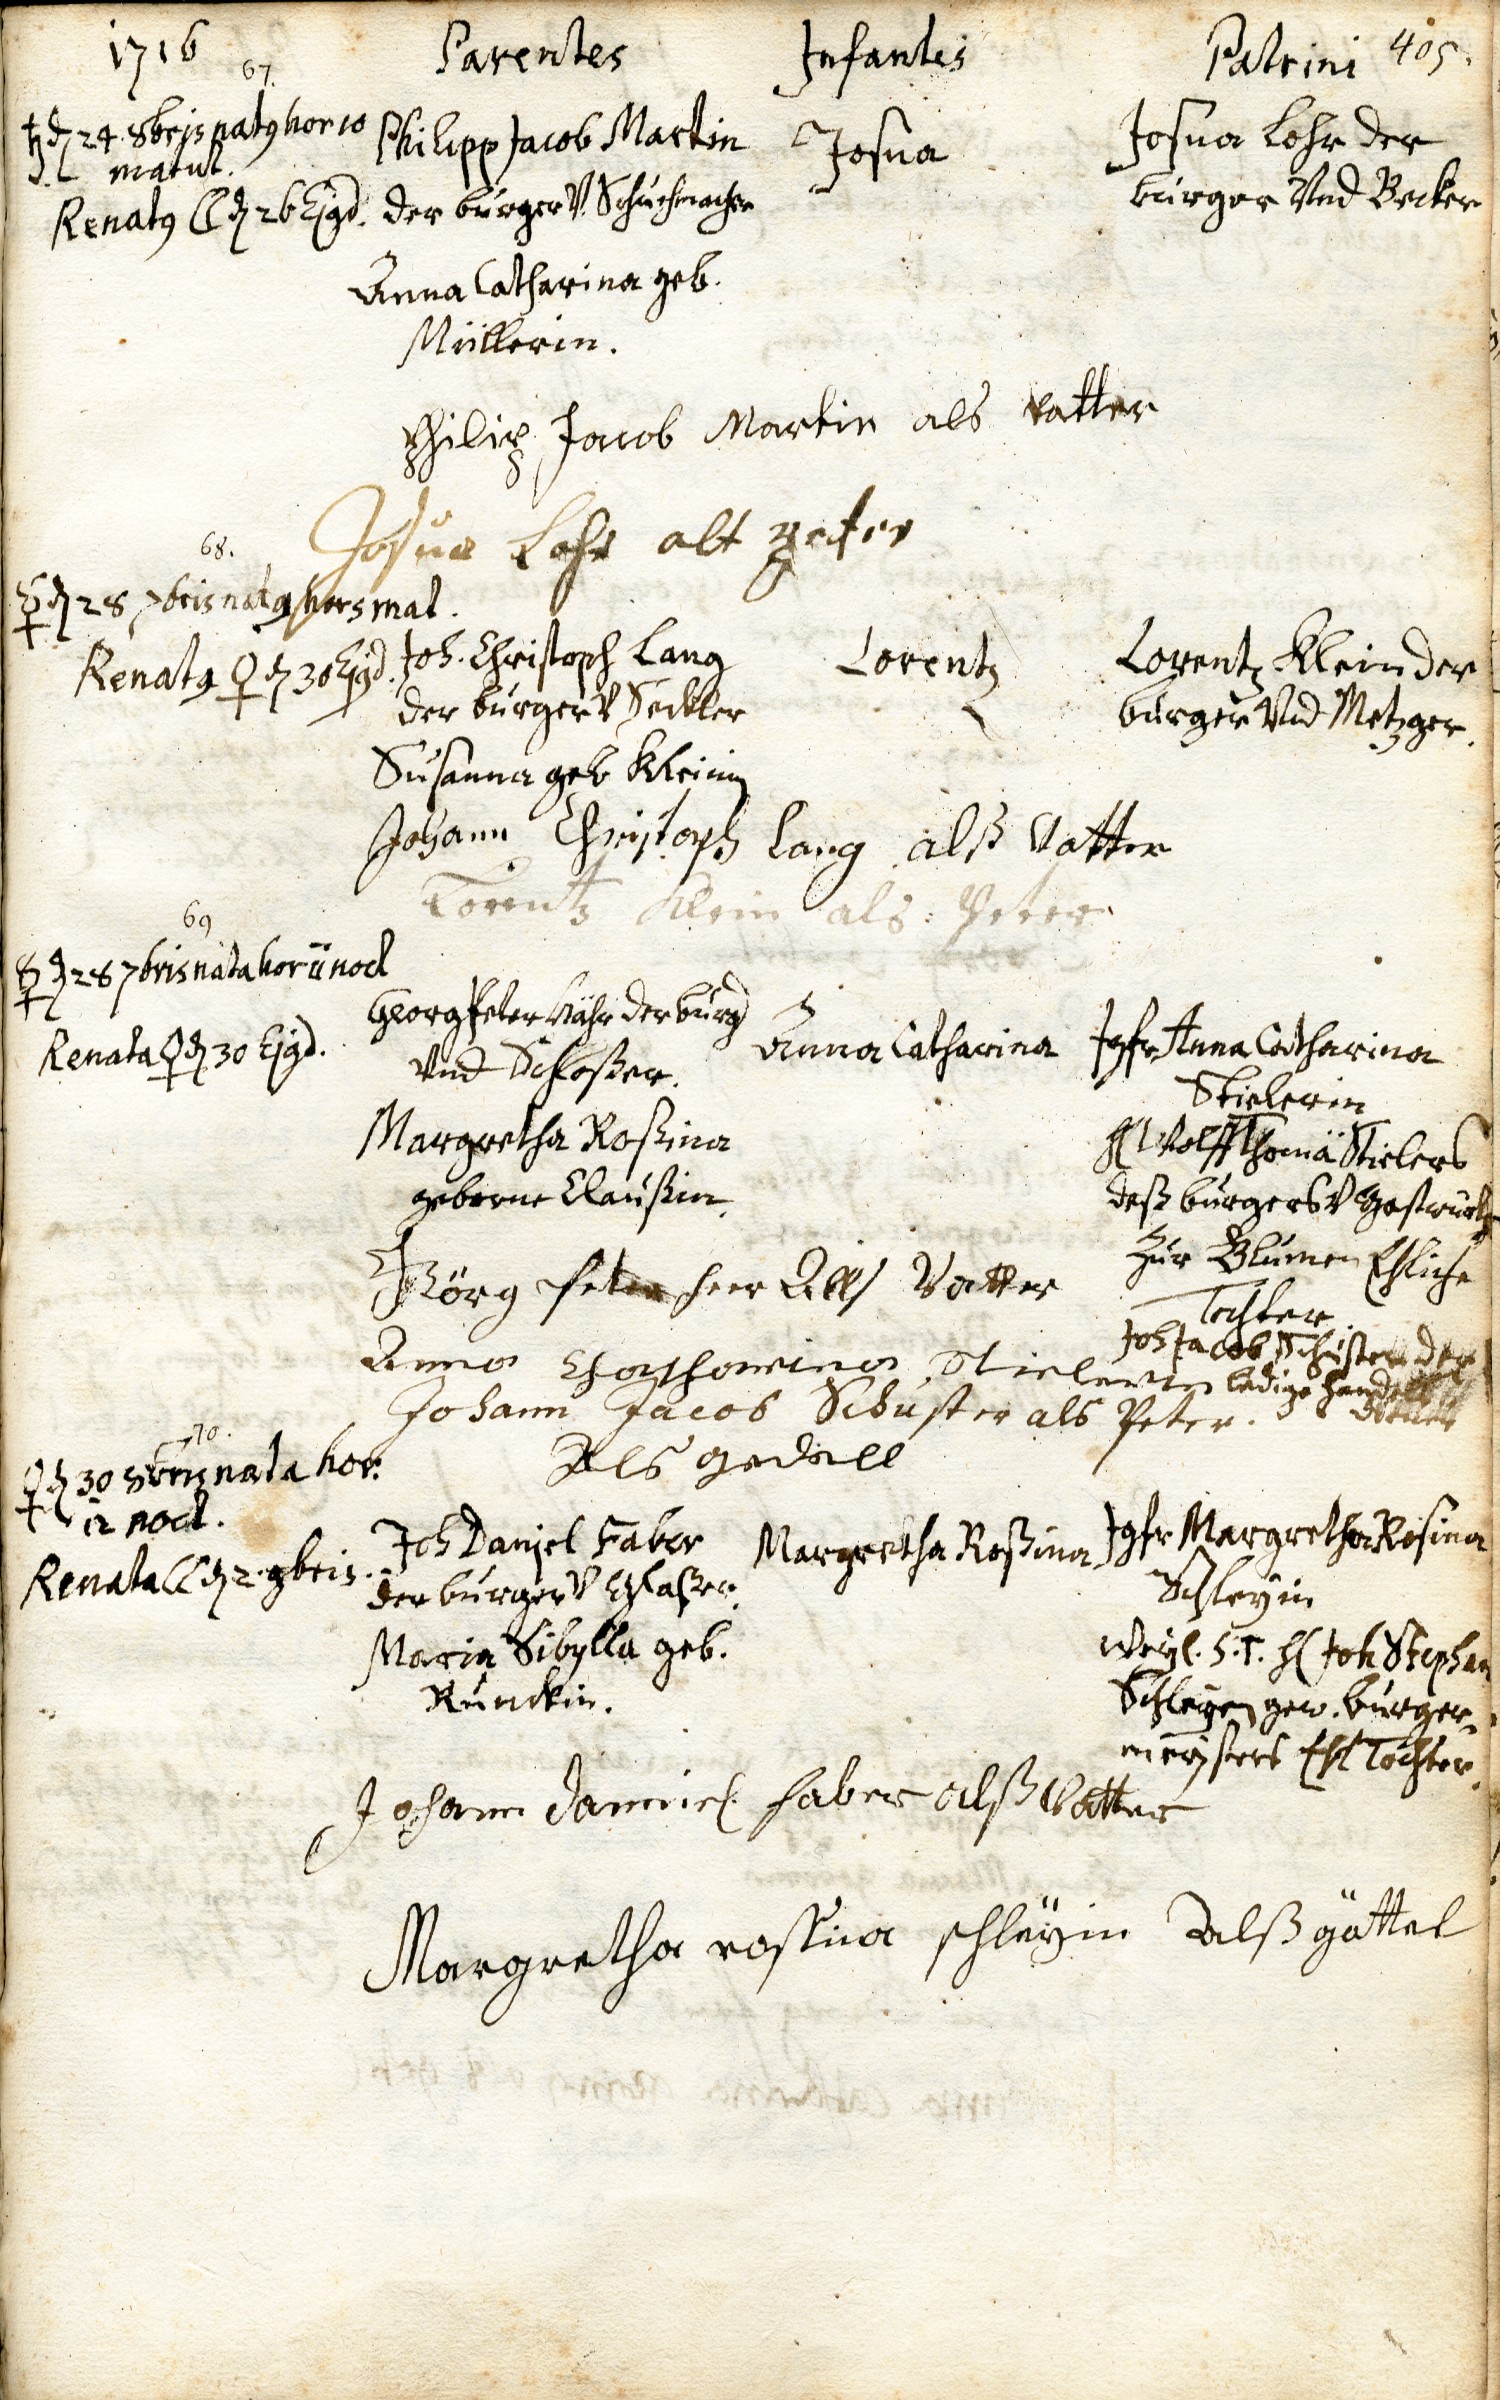 1716 Parentes Infantes Patrini 405.
67.
♄ d 24. 8bris natus hor 10
matut.
Renatus ☾ d 26 Ejgd.
Philipp Jacob Martin
der burger V. Schuchmacher
Anna Catharina geb.
Müllerin.
Josua
Josua Lohr der
burger Vnd Becker
Philipp Jacob Martin als vatter
Josua Lohr alt peter
68.
☿ d 28 7bris natus hor 5 mat.
Renatus ♀ d 30 Ejgd.
Joh. Christoph Lang
der burger V Seckler
Susanna geb Kleinin
Lorentz
Lorentz Klein der
burger Vnd Metzger.
Johann Christoph Lang alß Vatter
Lorentz Klein als Peter
69
☿ d 28 7bris nata hor 11 noct
Renata ♀ d 30 Ejgd.
Georg Peter Bähr der burg
Vnd Schloßer.
Margretha Roßina
geborne Claußin.
Anna Catharina
Jgfr Anna Catharina
Stielerin
H Wolff Thomä Stielers
deß burgers V Gastwürths
Zur Blumen Ehliche
Tochter
Joh Jacob Schuster der
ledige
Görg Peter Alls Vatter
Anna Chatharina Stielerin
Johann Jacob Schuster als Peter.
Als gedell
70.
♀ d 30 8bris nata hor.
12 noct.
Renata ☾ d 2. 9bris.
Joh Daniel Faber
der burger V Glaßer.
Maria Sibylla geb.
Runckin.
Margretha Roßina
Jgfr Margretha Rosina
Schleyin
Weyl. S. T. H Joh Stephan
Schleyen gew. burger-
meysters Ehl Tochter.
Johann Danniel faber alß Vatter
Margretha rossina schleyin Alß göttel